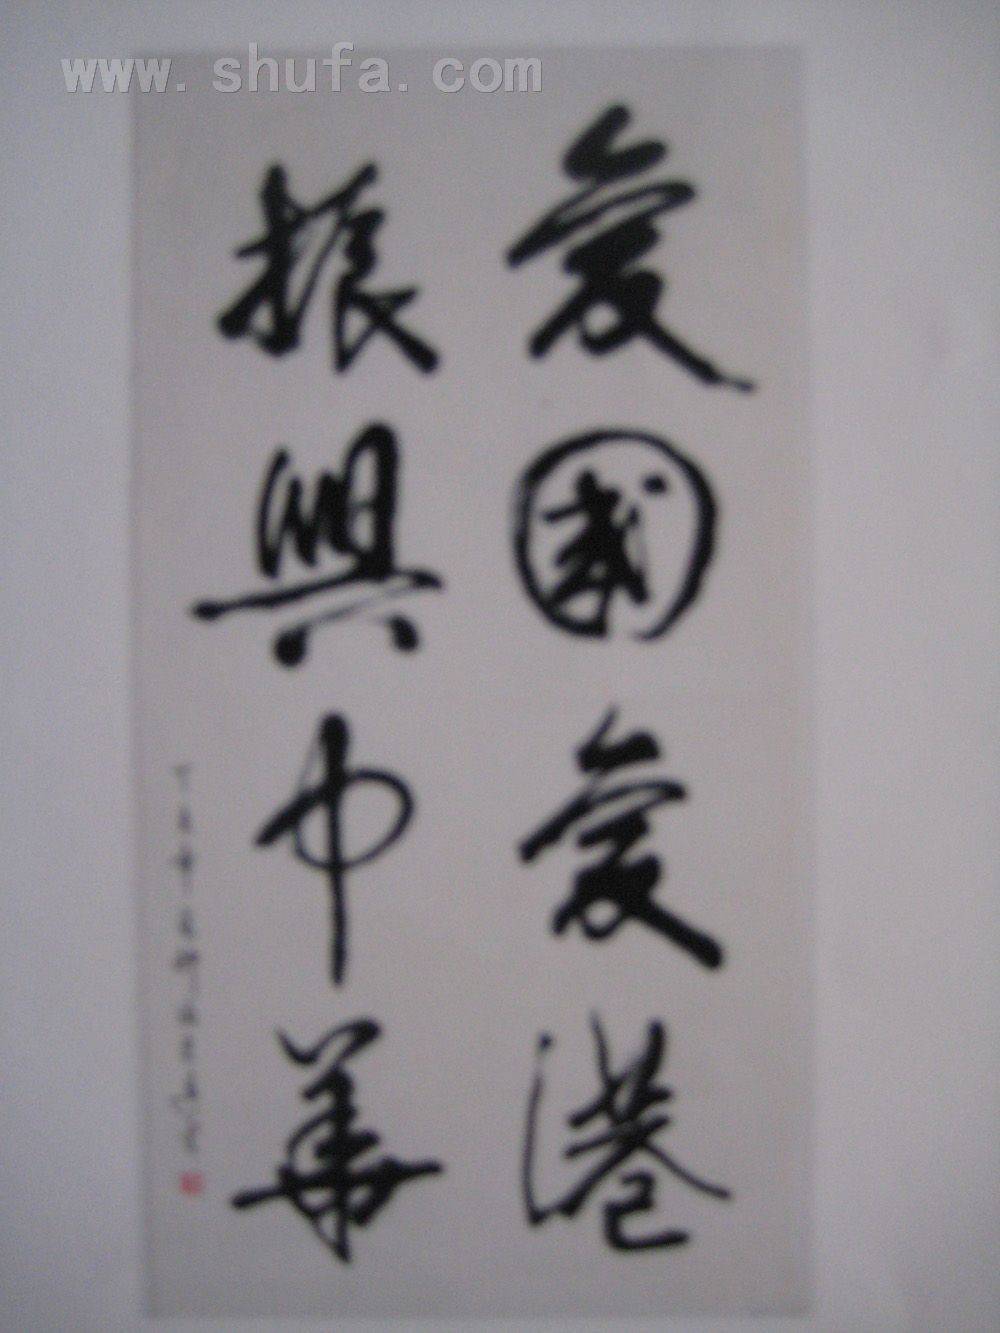 www.shufa.com
愛國愛港
振興中華